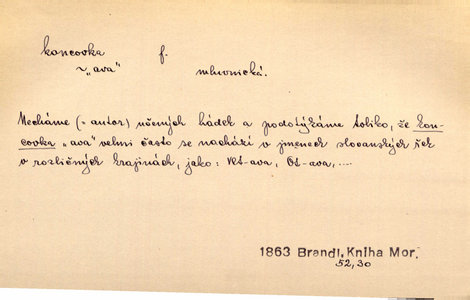 koncovka f.
~ „ava“ mluvnická.
Necháme (= autor) učených hádek a podotýkáme toliko, že kon-
covka „ava“ velmi často se nachází v jmenech slovanských řek
v rozličných krajinách, jako: Vlt-ava, Ot-ava, ....
1863 Brandl, Kniha Mor.
52, 30